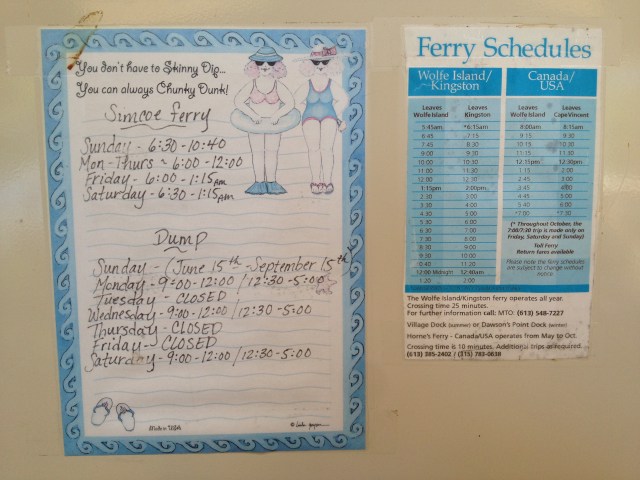 You don't have to Skinny Dip...
You can always Chunky Dunk!
Simcoe Ferry
Sunday - 6:30 - 10:40
Mon-Thurs - 6:00 - 12:00
Friday - 6:00 - 1:15 am
Saturday - 6:30 - 1:15 am
Dump
Sunday - (June 15th - September 15th)
Monday - 9:00 - 12:00 / 12:30 - 5:00
Tuesday - CLOSED
Wednesday - 9:00 - 12:00 / 12:30 - 5:00
Thursday - CLOSED
Friday - CLOSED
Saturday - 9:00 - 12:00 / 12:30 - 5:00
Ferry Schedules
Wolfe Island/
Kingston
Leaves Wolfe Island Leaves Kingston
5:45am *6:15am
6:45 7:15
7:45 8:30
9:00 9:30
10:00 10:30
11:00 11:30
12:00 12:30
1:15pm 2:00pm
2:30 3:00
3:30 4:00
4:30 5:00
Canada/
USA
Leaves Wolfe Island Leaves Cape Vincent
8:00am 8:15am
9:15 9:30
10:15 10:30
11:15 11:30
12:15pm 12:30pm
1:15 2:00
2:45 3:00
3:45 4:00
4:45
(* Throughout October, the
7:00/7:30 trip is made only on
Friday, Saturday and Sunday)
Toll Ferry
Return fares available
Please note the ferry schedules
are subject to change without
notice.
12:00 Midnight 12:40am
1:20 2:00
The Wolfe Island/Kingston ferry operates all year.
Crossing time 25 minutes.
For further information call: MTO: (613) 548-7227
Village Dock (summer) or Dawson's Point Dock (winter)
Horne's Ferry - Canada/USA operates from May to Oct.
Crossing time is 10 minutes. Additional trips as required.
(613) 385-2402 / (315) 783-0638